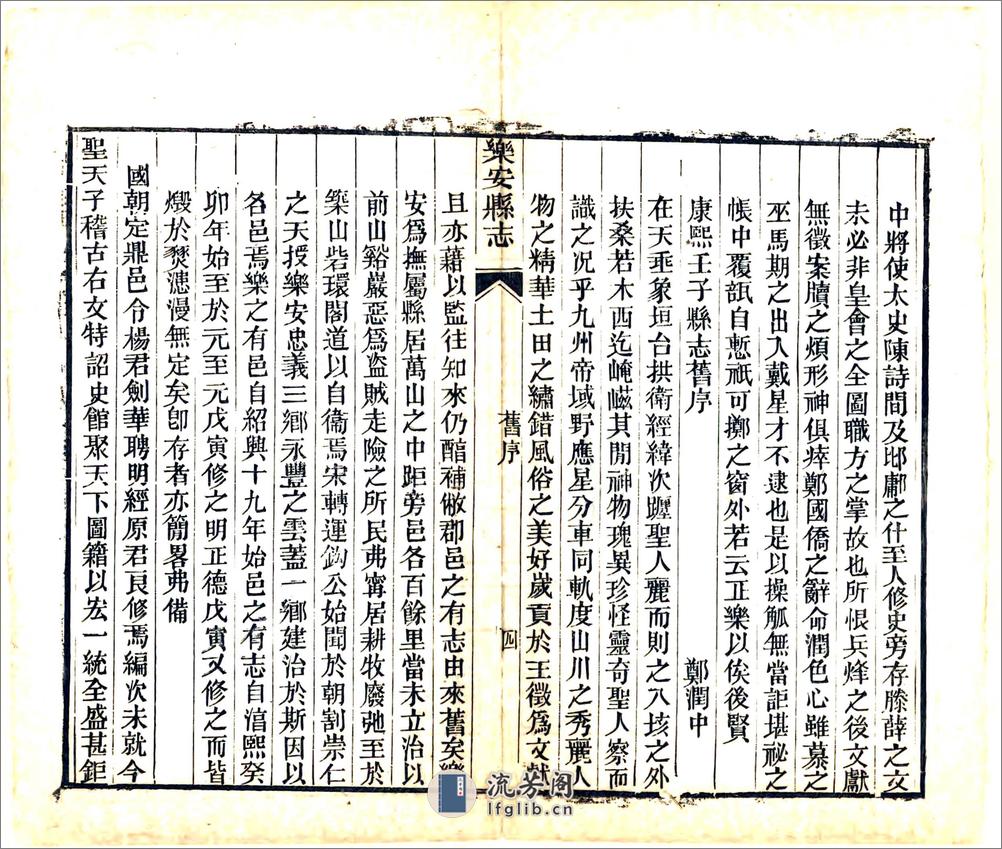 中將使太史陳詩間及邶鄘之什至人修史旁存滕薛之文
未必非皇會之全圖職方之掌故也所恨兵烽之後文獻
無徵案牘之煩形神俱瘁鄭國僑之辭命潤色心雖慕之
巫馬期之出入戴星才不逮也是以操觚無當詎堪祕之
帳中覆瓿自慙祇可擲之窗外若云正樂以俟後賢
康熙壬子縣志舊序 鄭潤中
在天垂象垣台拱衛經緯次躔聖人麗而則之八垓之外
扶桑若木西迄崦嵫其閒神物瑰異珍怪靈奇聖人察而
識之况乎九州帝域野應星分車同軌度山川之秀麗人
物之精華土田之繡錯風俗之美好歲貢於王徵爲文獻
樂安縣志 舊序 四
且亦藉以監往知來仍酣補敝郡邑之有志由來舊矣樂
安爲撫屬縣居萬山之中距旁邑各百餘里當未立治以
前山谿巖惡爲盜賊走險之所民弗寗居耕牧廢弛至於
築山砦環閣道以自衞焉宋轉運鈎公始聞於朝割崇仁
之天授樂安忠義三鄉永豐之雲蓋一鄉建治於斯因以
名邑焉樂之有邑自紹興十九年始邑之有志自淳熙癸
卯年始至於元至元戊寅修之明正德戊寅又修之而皆
燬於漶漫無定矣卽存者亦簡畧弗備
國朝定鼎邑令楊君劍華聘明經原君良修焉編次未就今
聖天子稽古右文特詔史館聚天下圖籍以宏一統全盛甚鉅
流芳阁
lfglib.cn